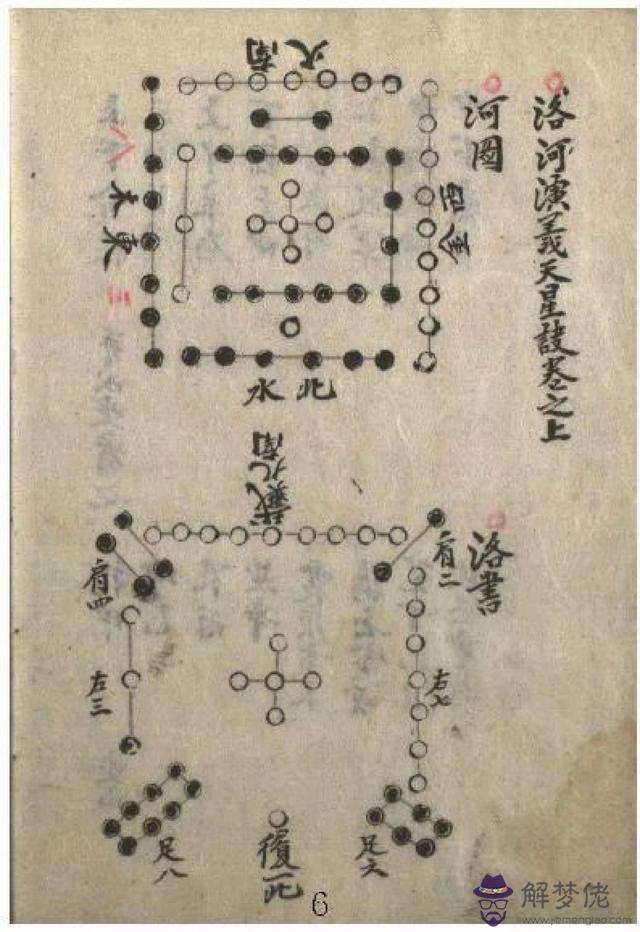 洛河演義天星訣卷之上
河圖
南火
西金
東木
三
北水
洛書
戴九南
肩二
肩四
右七
左三
足六
足八
履一北
6
解梦佬
www.jiemenglao.com